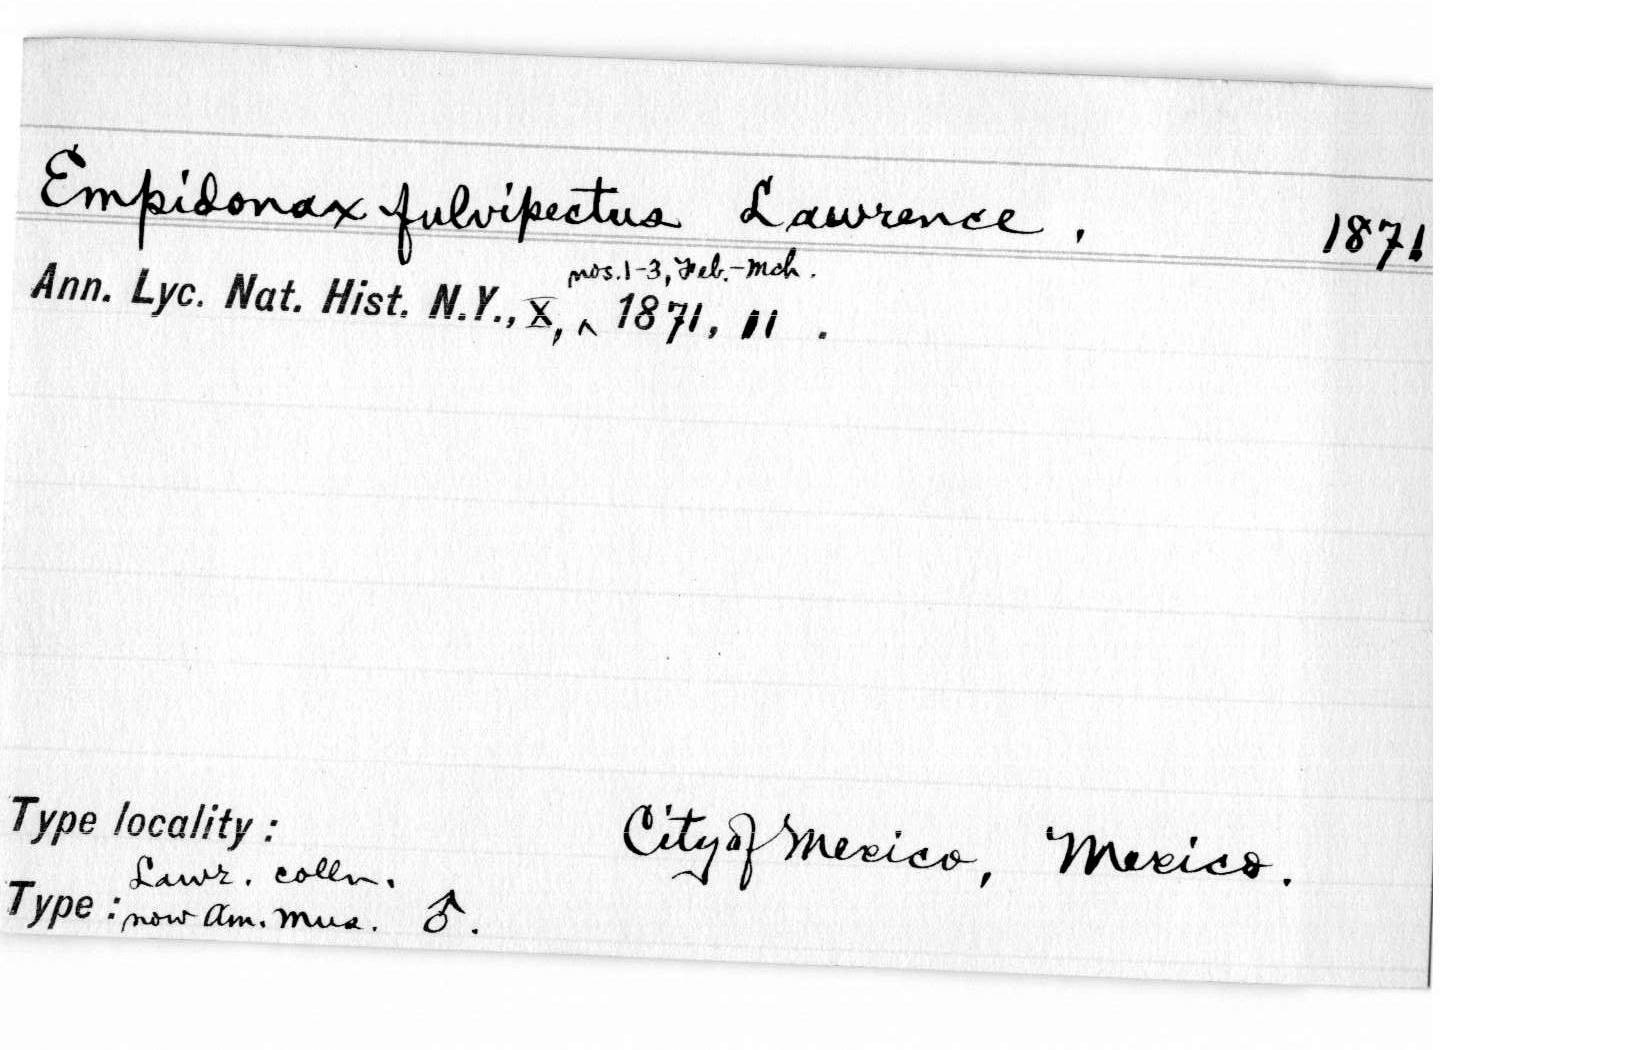 Empidonax fulvipectus Lawrence, 1871
nos. 1-3, Feb.-Mch.
Ann. Lyc. Nat. Hist. N.Y., X, ^ 1871, 11 .
Type locality : City of Mexico, Mexico.
Lawr. colln.
Type : now Am. Mus. ♂.